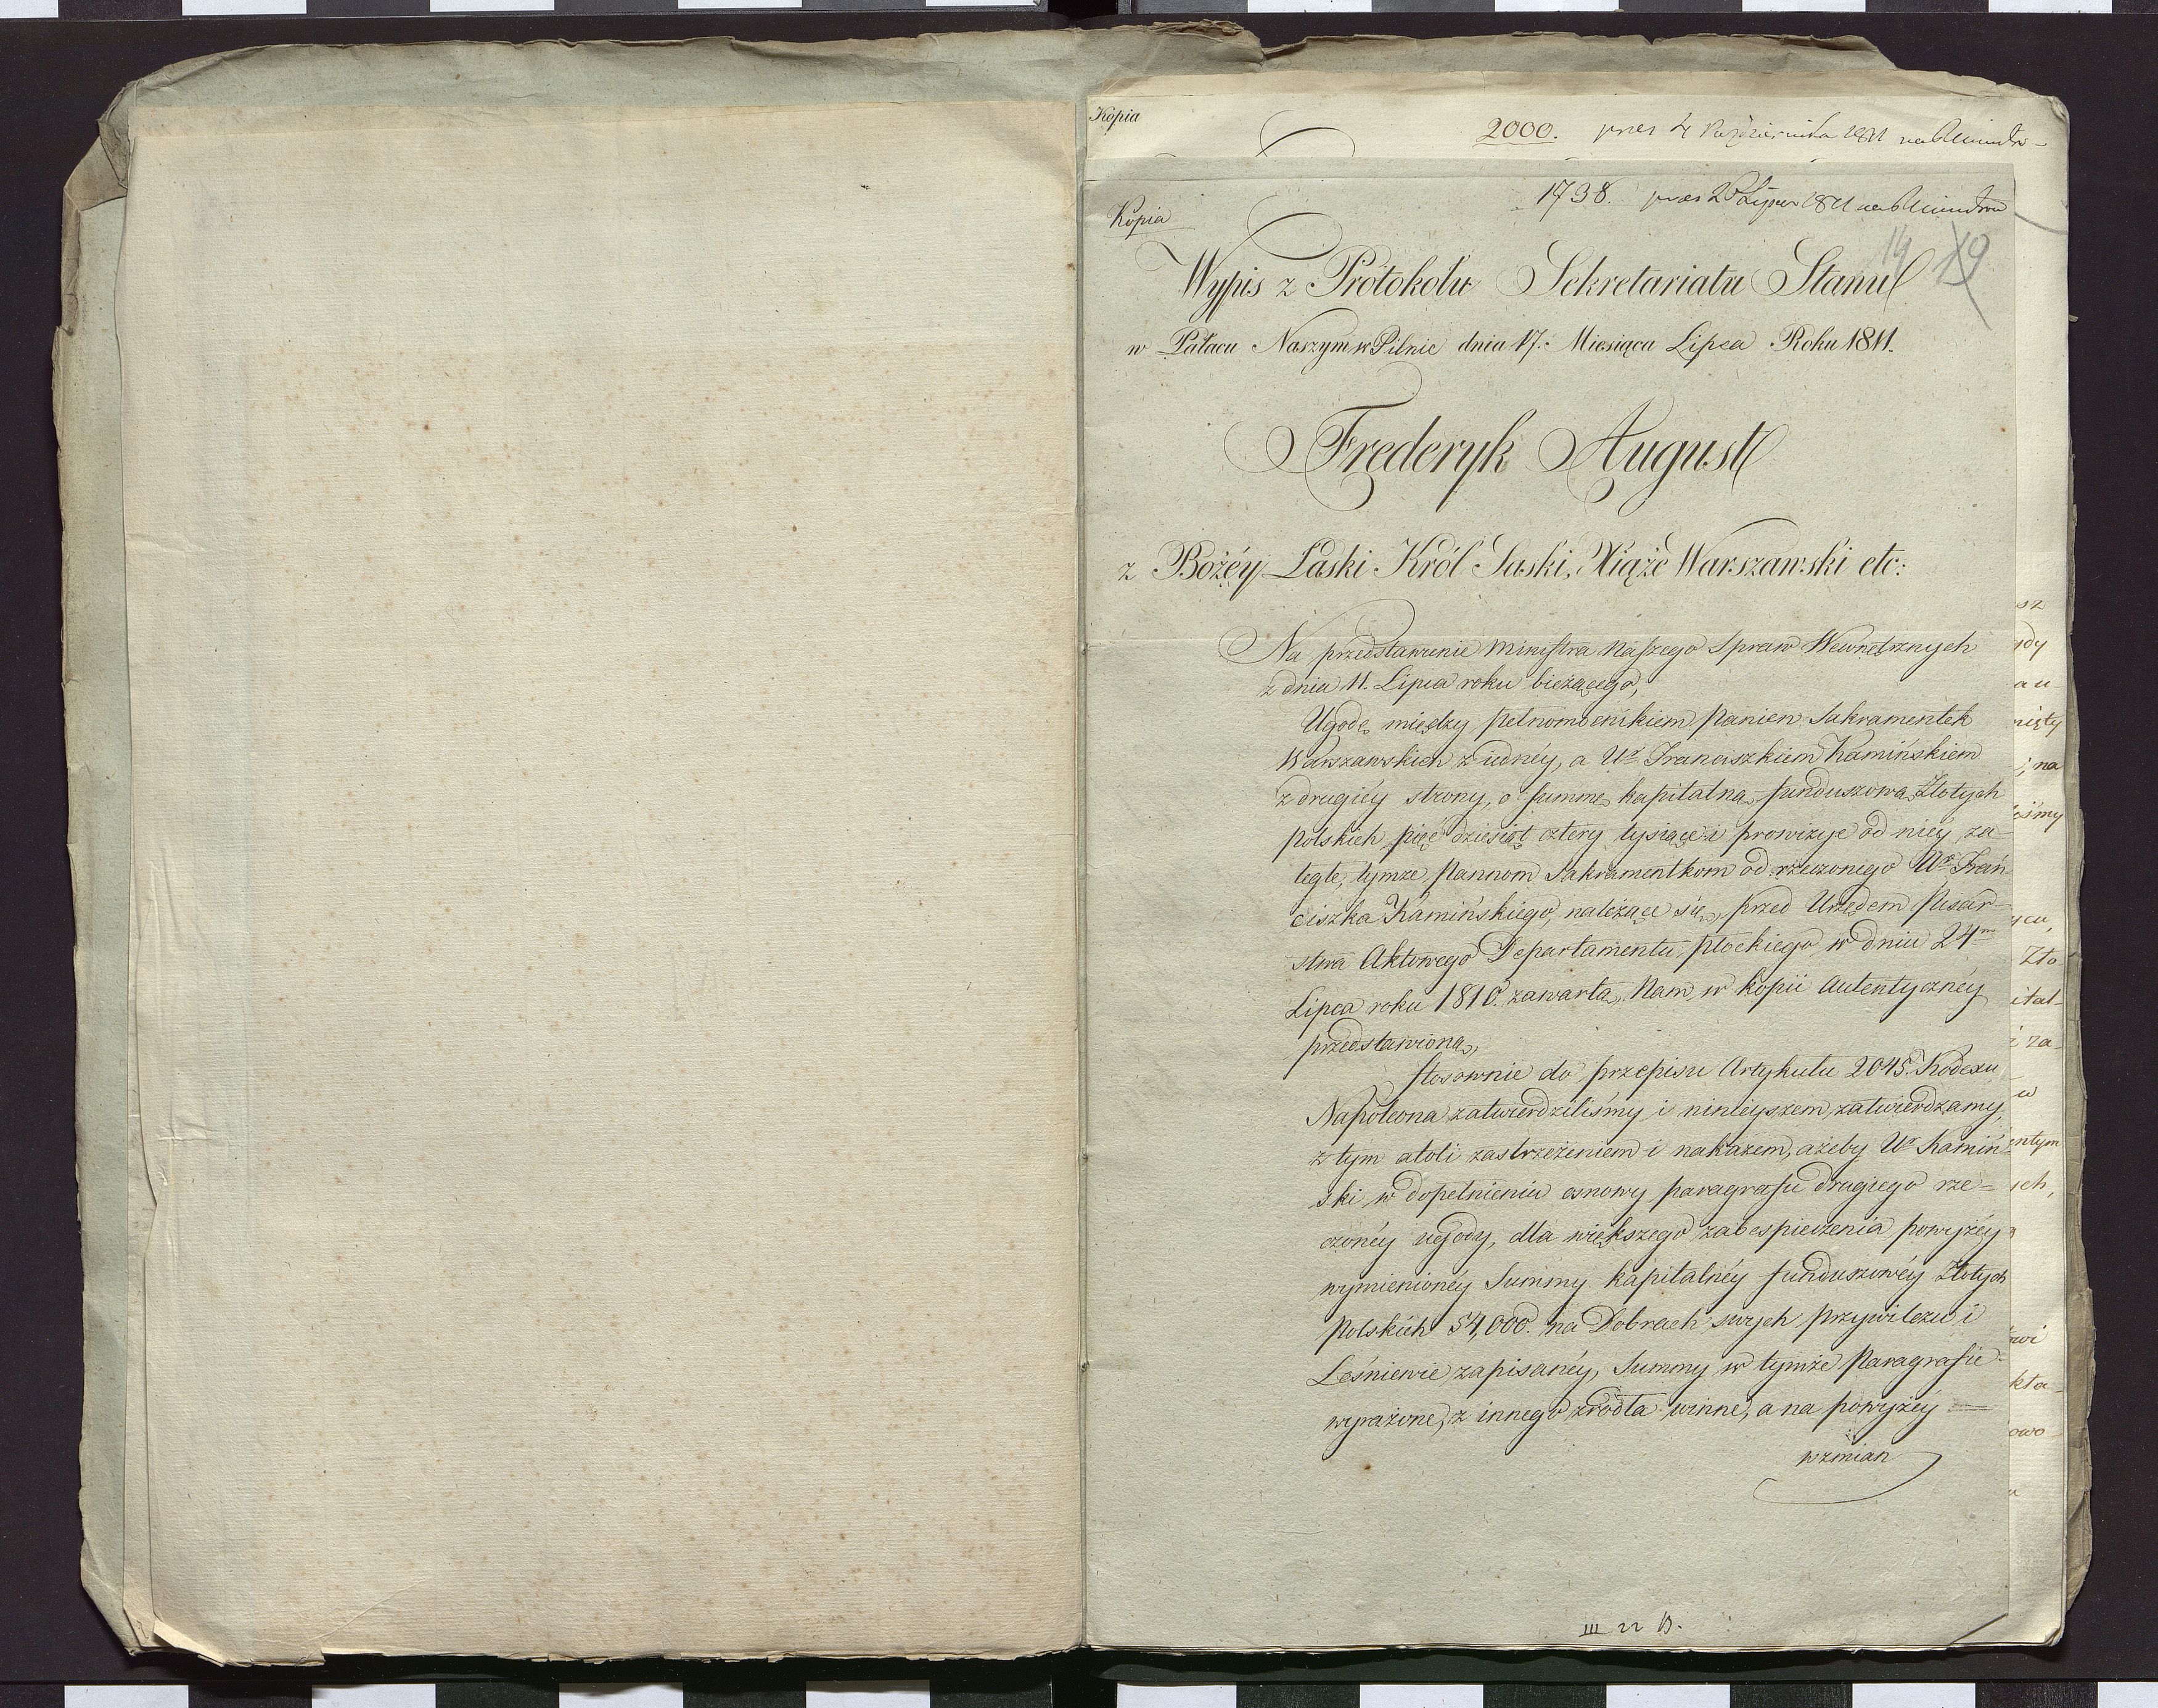 Kopia
2000. pres 4 Października 1811
Kopia
1738. pres 2 Lipca 1811
14 19
Wypis z Protokołu Sekretariatu Stanu
w Pałacu Naszym w Pilnic dnia 17. Miesiąca Lipca Roku 1811.
Frederyk August
z Bożéy Łaski Król Saski, Xiąże Warszawski etc:
Na przedstawienie Ministra Naszego Spraw Wewnętrznych
z dnia 11. Lipca roku bieżącego,
Ugodę między pełnomocnikiem Panien Sakramentek
Warszawskich z iednéy, a Ur Franciszkiem Kamińskiem
z drugiéy strony, o summę kapitalną funduszową Złotych
Polskich pięćdziesiąt cztery tysiące i prowizye od niéy za-
ległe, tymże Pannom Sakramentkom od rzeczonego Ur Fran
ciszka Kamińskiego, należące się, przed Urzędem Pisar-
stwa Aktowego Departamentu Płockiego w dniu 24m
Lipca roku 1810. zawartą, Nam w kopii Autentycznéy
przedstawioną,
stosownie do przepisu Artykułu 2045. Kodexu
Napoleona zatwierdziliśmy i ninieyszem zatwierdzamy,
z tym atoli zastrzeżeniem i nakazem, ażeby Ur Kamiń-
ski w dopełnieniu osnowy paragrafu drugiego rze-
czonéy ugody, dla większego zabespieczenia powyżéy
wymienionéy Summy kapitalnéy funduszowéy Złotych
Polskich 54,000. na Dobrach swych przywilezu i
Leśniewie zapisanéy, Summy w tymże Paragrafie
wyrażone, z innego źródła winne, a na powyżéy
wzmian
sz
ędy
a u-
nięty
i, na
iśmy
ycu,
Zło
ital-
i za-
w
entym
ych,
owi
kta-
owo
III 22 B.